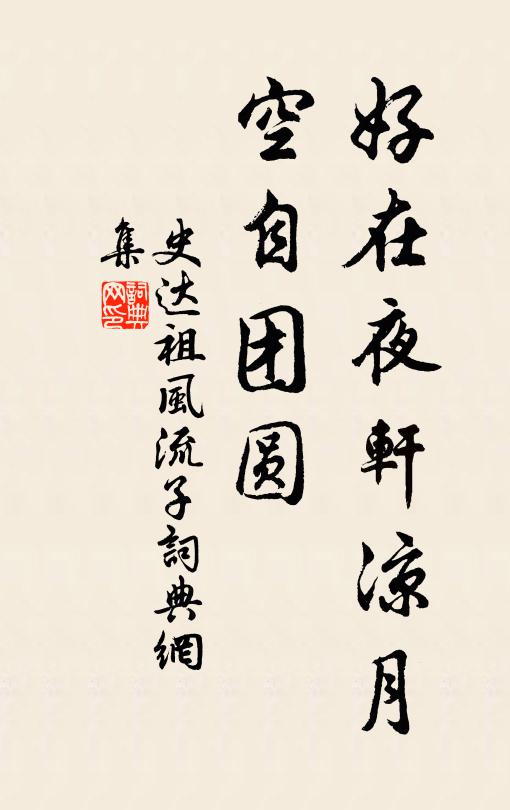 好在夜軒涼月
空自团圆
史达祖風流子詞典網
集
詞典
网印